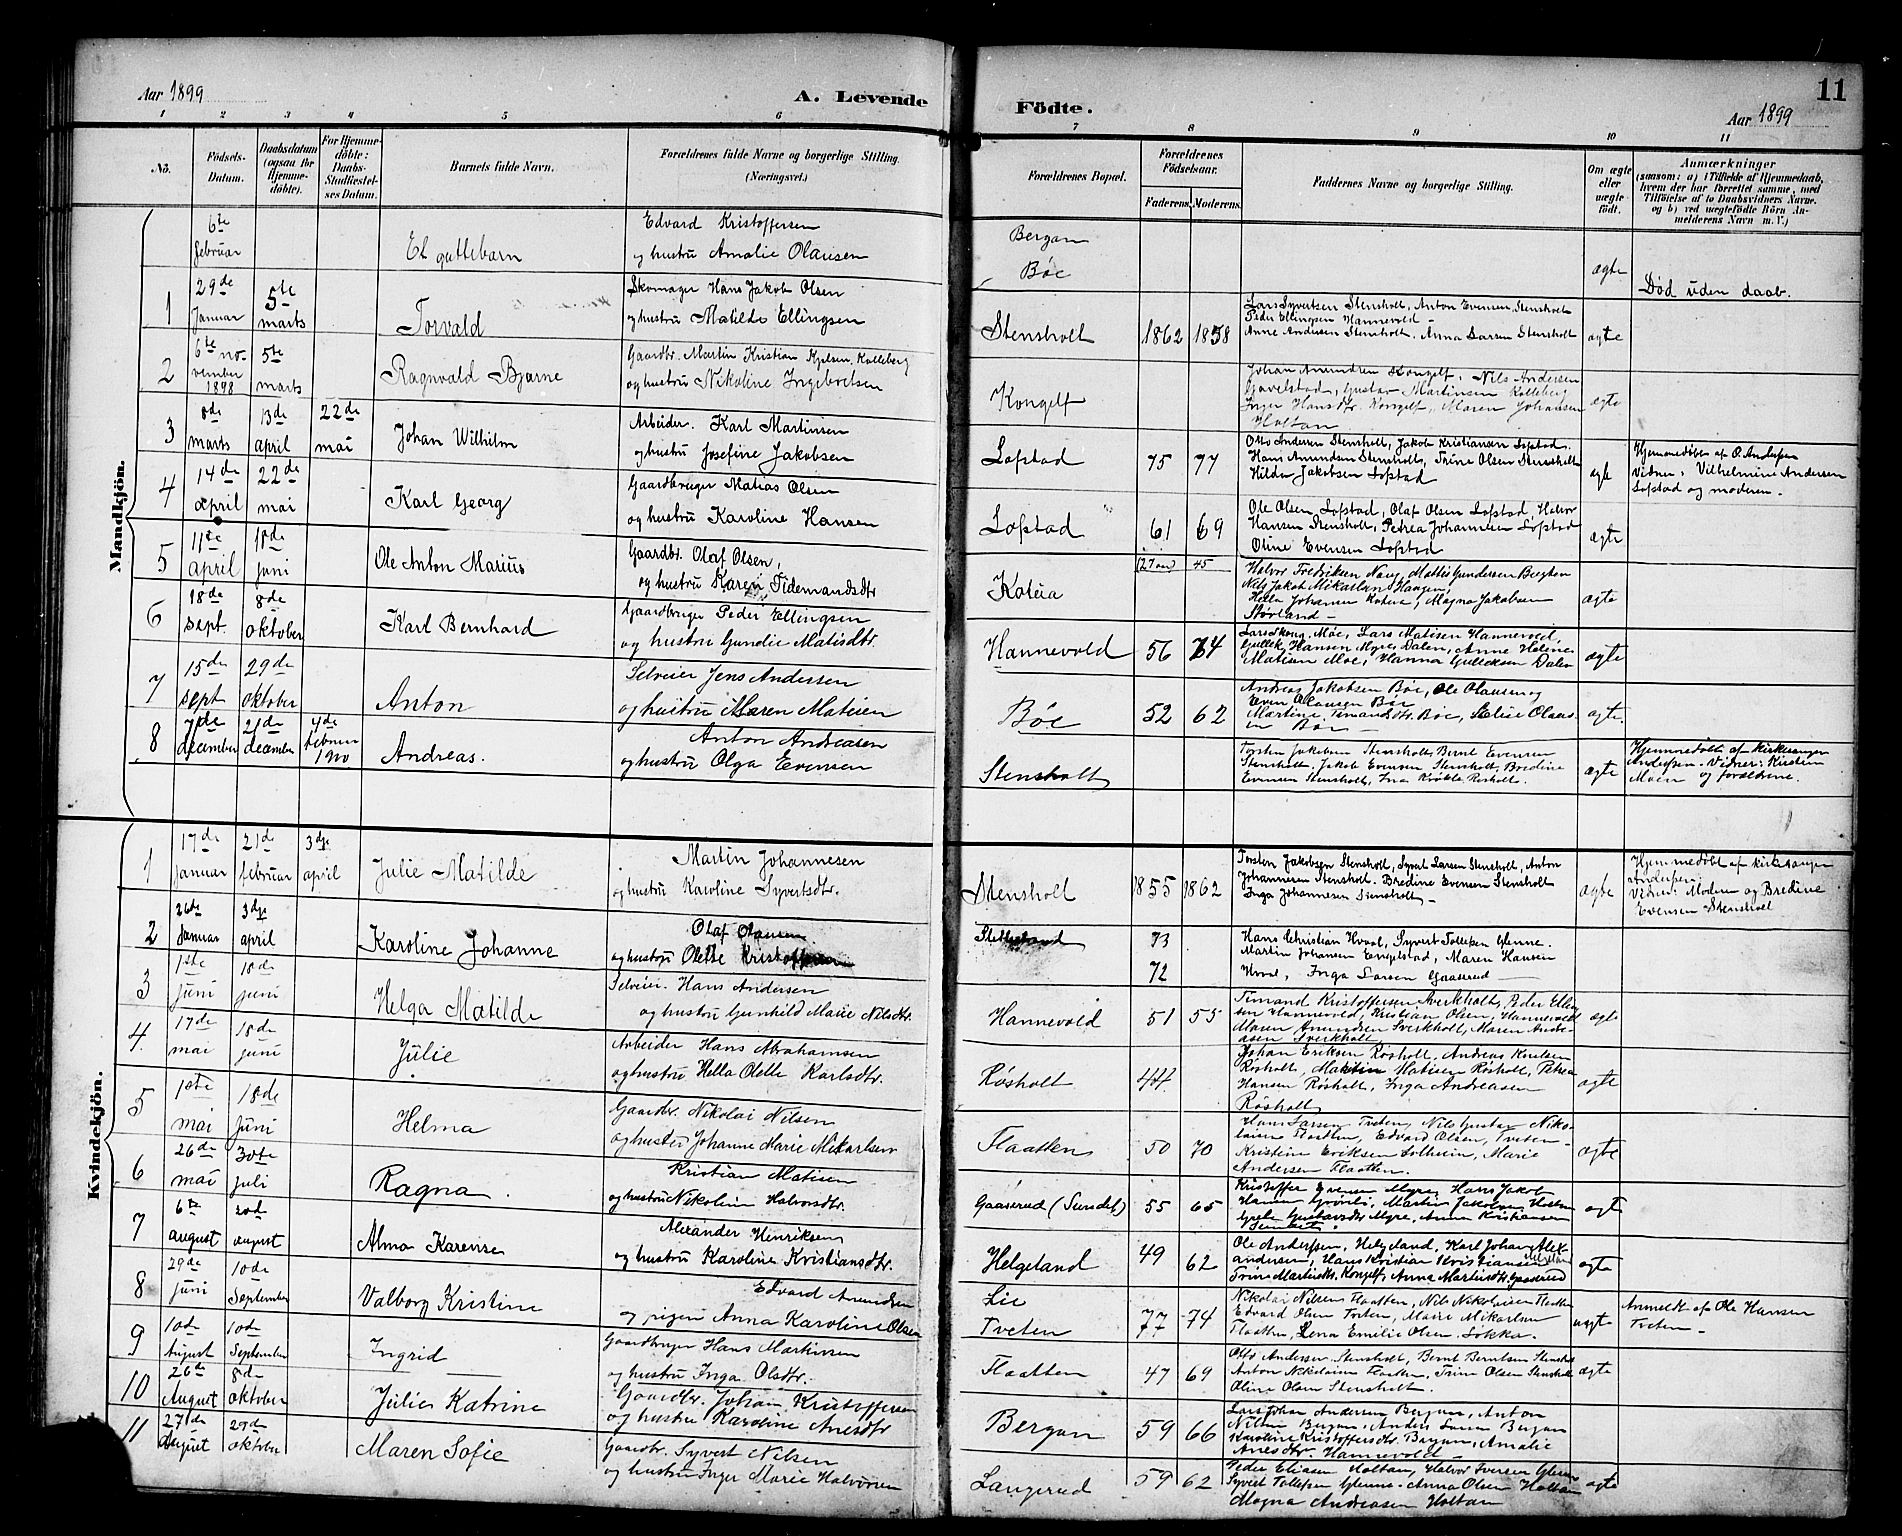 Aar 1899
A. Levende
Födte.
11
Aar 1899
1 2 3 4 5 6 7 8 9 10 11
Nö.
Födsels-
Datum.
Daabsdatum
(ogsaa for
Hjemme-
döbte).
For Hjemme-
döbte:
Daabs-
Stadfæstel-
ses Datum.
Barnets fulde Navn.
Forældrenes fulde Navne og borgerlige Stilling.
(Næringsvei.)
Forældrenes Bopæl.
Forældrenes
Födselsaar.
Faderens. Moderens.
Faddernes Navne og borgerlige Stilling.
Om ægte
eller
uægte
födt.
Anmærkninger
(saasom: a) i Tilfælde af Hjemmedaab,
hvem der har forrettet samme, med
Tilföielse af to Daabsvidners Navne.
og b) ved uægtefödte Börn An-
melderens Navn m. V.)
Mandkjön.
6te
februar
Et guttebarn
Edvard Kristoffersen
og hustru Amalie Olausen
Bergan
Böe
ægte
Död uden daab.
1
29de
Januar
5te
marts
Torvald
Skomager Hans Jakob Olsen
og hustru Matilde Ellingsen
Stensholt
1862 1858
Lars Syvertsen Stensholt, Anton Evensen Stensholt
Peder Ellingsen Hannevold -
Anne Andersen Stensholt, Anna Larsen Stensholt
ægte
2
6te no-
vember
1898
5te
marts
Ragnvald Bjarne
Gaardbr. Martin Kristian Kjelsen Kolleberg
og hustru Nikoline Ingebretsen
Kongelf
Johan Amundsen Kongelf, Nils Andersen
Gavelstad, Gustav Martinsen Kolleberg
Inger Hansdtr. Kongelf, Maren Johansen
Holtan
ægte
3
8de
marts
13de
april
22de
mai
Johan Wilhelm
Arbeider. Karl Martinsen
og hustru Josefine Jakobsen
Lofstad
75 77
Otto Andersen Stensholt, Jakob Kristiansen Lofstad.
Hans Amundsen Stensholt, Trine Olsen Stensholt
Hilda Jakobsen Lofstad
ægte
Hjemmedöbt af O. Andersen
Vidner: Vilhelmine Andersen
Lofstad og moderen.
4
14de
april
22de
mai
Karl Georg
Gaardbruger Matias Olsen
og hustru Karoline Hansen
Lofstad
61 69
Ole Olsen Lofstad, Olaf Olsen Lofstad, Halvor
Hansen Stensholt, Petrea Johannesen Lofstad
Oline Evensen Lofstad
ægte
5
11te
april
18de
juni
Ole Anton Marius
Gaardbr. Olaf Olsen,
og hustru Karen Tidemandsdtr
Koteia
45
Halvor Fredriksen Naug, Mattis Gundersen Bergan
Nils Jakob Mikarlsen Haugen,
Hella Johansen Koteia, Magna Jakobsen
Storland
ægte
6
18de
sept.
8de
oktober
Karl Bernhard
Gaardbruger Peder Ellingsen
og hustru Gundie Matisdtr.
Hannevold
56 74
Lars Skong. Moe, Lars Matisen Hannevold,
Gullek Hansen Myre Dalen, Anne Helene
Matisen Moe, Hanna Gulleksen Dalen
ægte
7
15de
sept
29de
oktober
Anton
Selveier Jens Andersen
og hustru Maren Matisen
Böe
52 62
Andreas Jakobsen Böe, Ole Olausen og
Even Olausen Böe
Martine Timansdtr. Böe, Elise Olaus-
en Böe -
ægte.
8
7de
december
21de
december
4de
februar
1900
Andreas.
Anton Andreasen
og hustru Olga Evensen
Stensholt
Torsten Jakobsen Stensholt, Bernt Evensen
Stensholt, Jakob Evensen Stensholt, Bredine
Evensen Stensholt, Ina Rösholt.
ægte
Hjemmedöbt af kirkesanger
Andersen. Vidner: Kirsten
Moen og forældrene.
Kvindekjön.
1
17de
Januar
21de
februar
3die
april
Julie Matilde
Martin Johannesen
og hustru Karoline Syvertsdtr.
Stensholt
1855 1862
Torsten Jakobsen Stensholt, Syvert Larsen Stensholt, Anton
Johannesen Stensholt. Bredine Evensen Stensholt
Inga Johannesen Stensholt -
ægte
Hjemmedöbt af kirkesanger
Andersen.
Vidner: Moderen og Bredine
Evensen Stensholt
2
26de
Januar
3die
april
Karoline Johanne
Olaf Olausen
og hustru Olette Kristoffersen
73
72
Hans Christian Hvaal, Syvert Tollefsen Glenne.
Martin Johansen Engelstad, Maren Hansen
Hvaal, Inga Larsen Gaaserud
3
1ste
Juni
18de
juni
Helga Matilde
Selveier. Hans Andersen
og hustru Gunhild Marie Nilsdtr.
Hannevold
51 55
Timand Kristoffersen Sverkholt, Peder Elling-
sen Hannevold, Kristian Olsen, Hannevold
Maren Amundsen Sverkholt, Maren Andre-
asen Sverkholt
ægte
4.
17de
mai
18de
juni
Julie
Arbeider Hans Abrahamsen
og hustru Hella Olette Karlsdtr.
Rösholt
44
Johan Eriksen Rösholt, Andreas Knutsen
Rösholt, Martin Matisen Rösholt, Petrea
Hansen Rösholt, Inga Andreasen
Rösholt
ægte
5
1ste
mai
18de
Juni
Helma
Gaardbr. Nikolai Nilsen
og hustru Johanne Marie Mikarlsen
Flaatten
50 70
Hans Larsen Tveten, Nils Gustav Niko-
laisen Flaatten, Edvard Olsen, Tveten -
Kristine Eriksen Solheim, Marie
Andersen Flaatten.
ægte
6
26de
mai
30te
juli
Ragna.
Kristian Matisen
og hustru Nikoline Halvorsdtr.
Gaaserud (Sundet)
55 65
Kristoffer Iversen Myre, Hans Jakob
Hansen, Martin Jakobsen
Gustavsdtr Myre, Anna Kristiansen
Sundet.
ægt
7
6te
august
20de
august
Alma Karense
Alexander Henriksen
og hustru Karoline Kristiansdtr.
Helgeland
49 62
Ole Andersen, Helgeland, Karl Johan Alex-
andersen, Hans Kristian Kristiansen
Trine Martinsdtr. Kongelf, Anna Martinsdtr. Gaaserud
ægte
8
29de
juni
10de
September
Valborg Kristine
Edvard Amundsen
og pigen Anna Karoline Olsen
Lie
Tveten
77 74
Nikolai Nilsen Flaatten, Nils Nikolaisen Flaatten
Edvard Olsen Tveten, Marie Mikarlsen
Flaatten, Lena Emilie Olsen Lökka.
uægte
Anmeldt af Ole Hansen
Tveten -
9
10de
August
10de
September
Ingrid
Gaardbruger Hans Martinsen
og hustru Inga Olsdtr.
Flaatten
47 69
Otto Andersen Stensholt, Bernt Berntsen Stensholt
Anton Nikolaisen Flaatten, Trine Olsen Stensholt
Oline Olsen Stensholt.
ægte
10
26de
August
8de
oktober
Julie Katrine
Gaardbr. Johan Kristoffersen
og hustru Karoline Anesdtr
Bergan
59 66
Lars Johan Andersen Bergan, Anton
Nilsen Bergan, Anders Larsen Bergan
Karoline Kristoffersdtr. Bergan, Amalie
Anesdtr Hannevold
ægte
11
27de
August
29de
oktober
Maren Sofie
Gaardbr. Syvert Nilsen
og hustru Inger Marie Halvorsen
Langerud
59 62
Peder Eliasen Holtan, Halvor Iversen Glenne
Syvert Tollefsen Glenne - Anna Olsen Holtan
Magna Andreasen Holtan
ægte